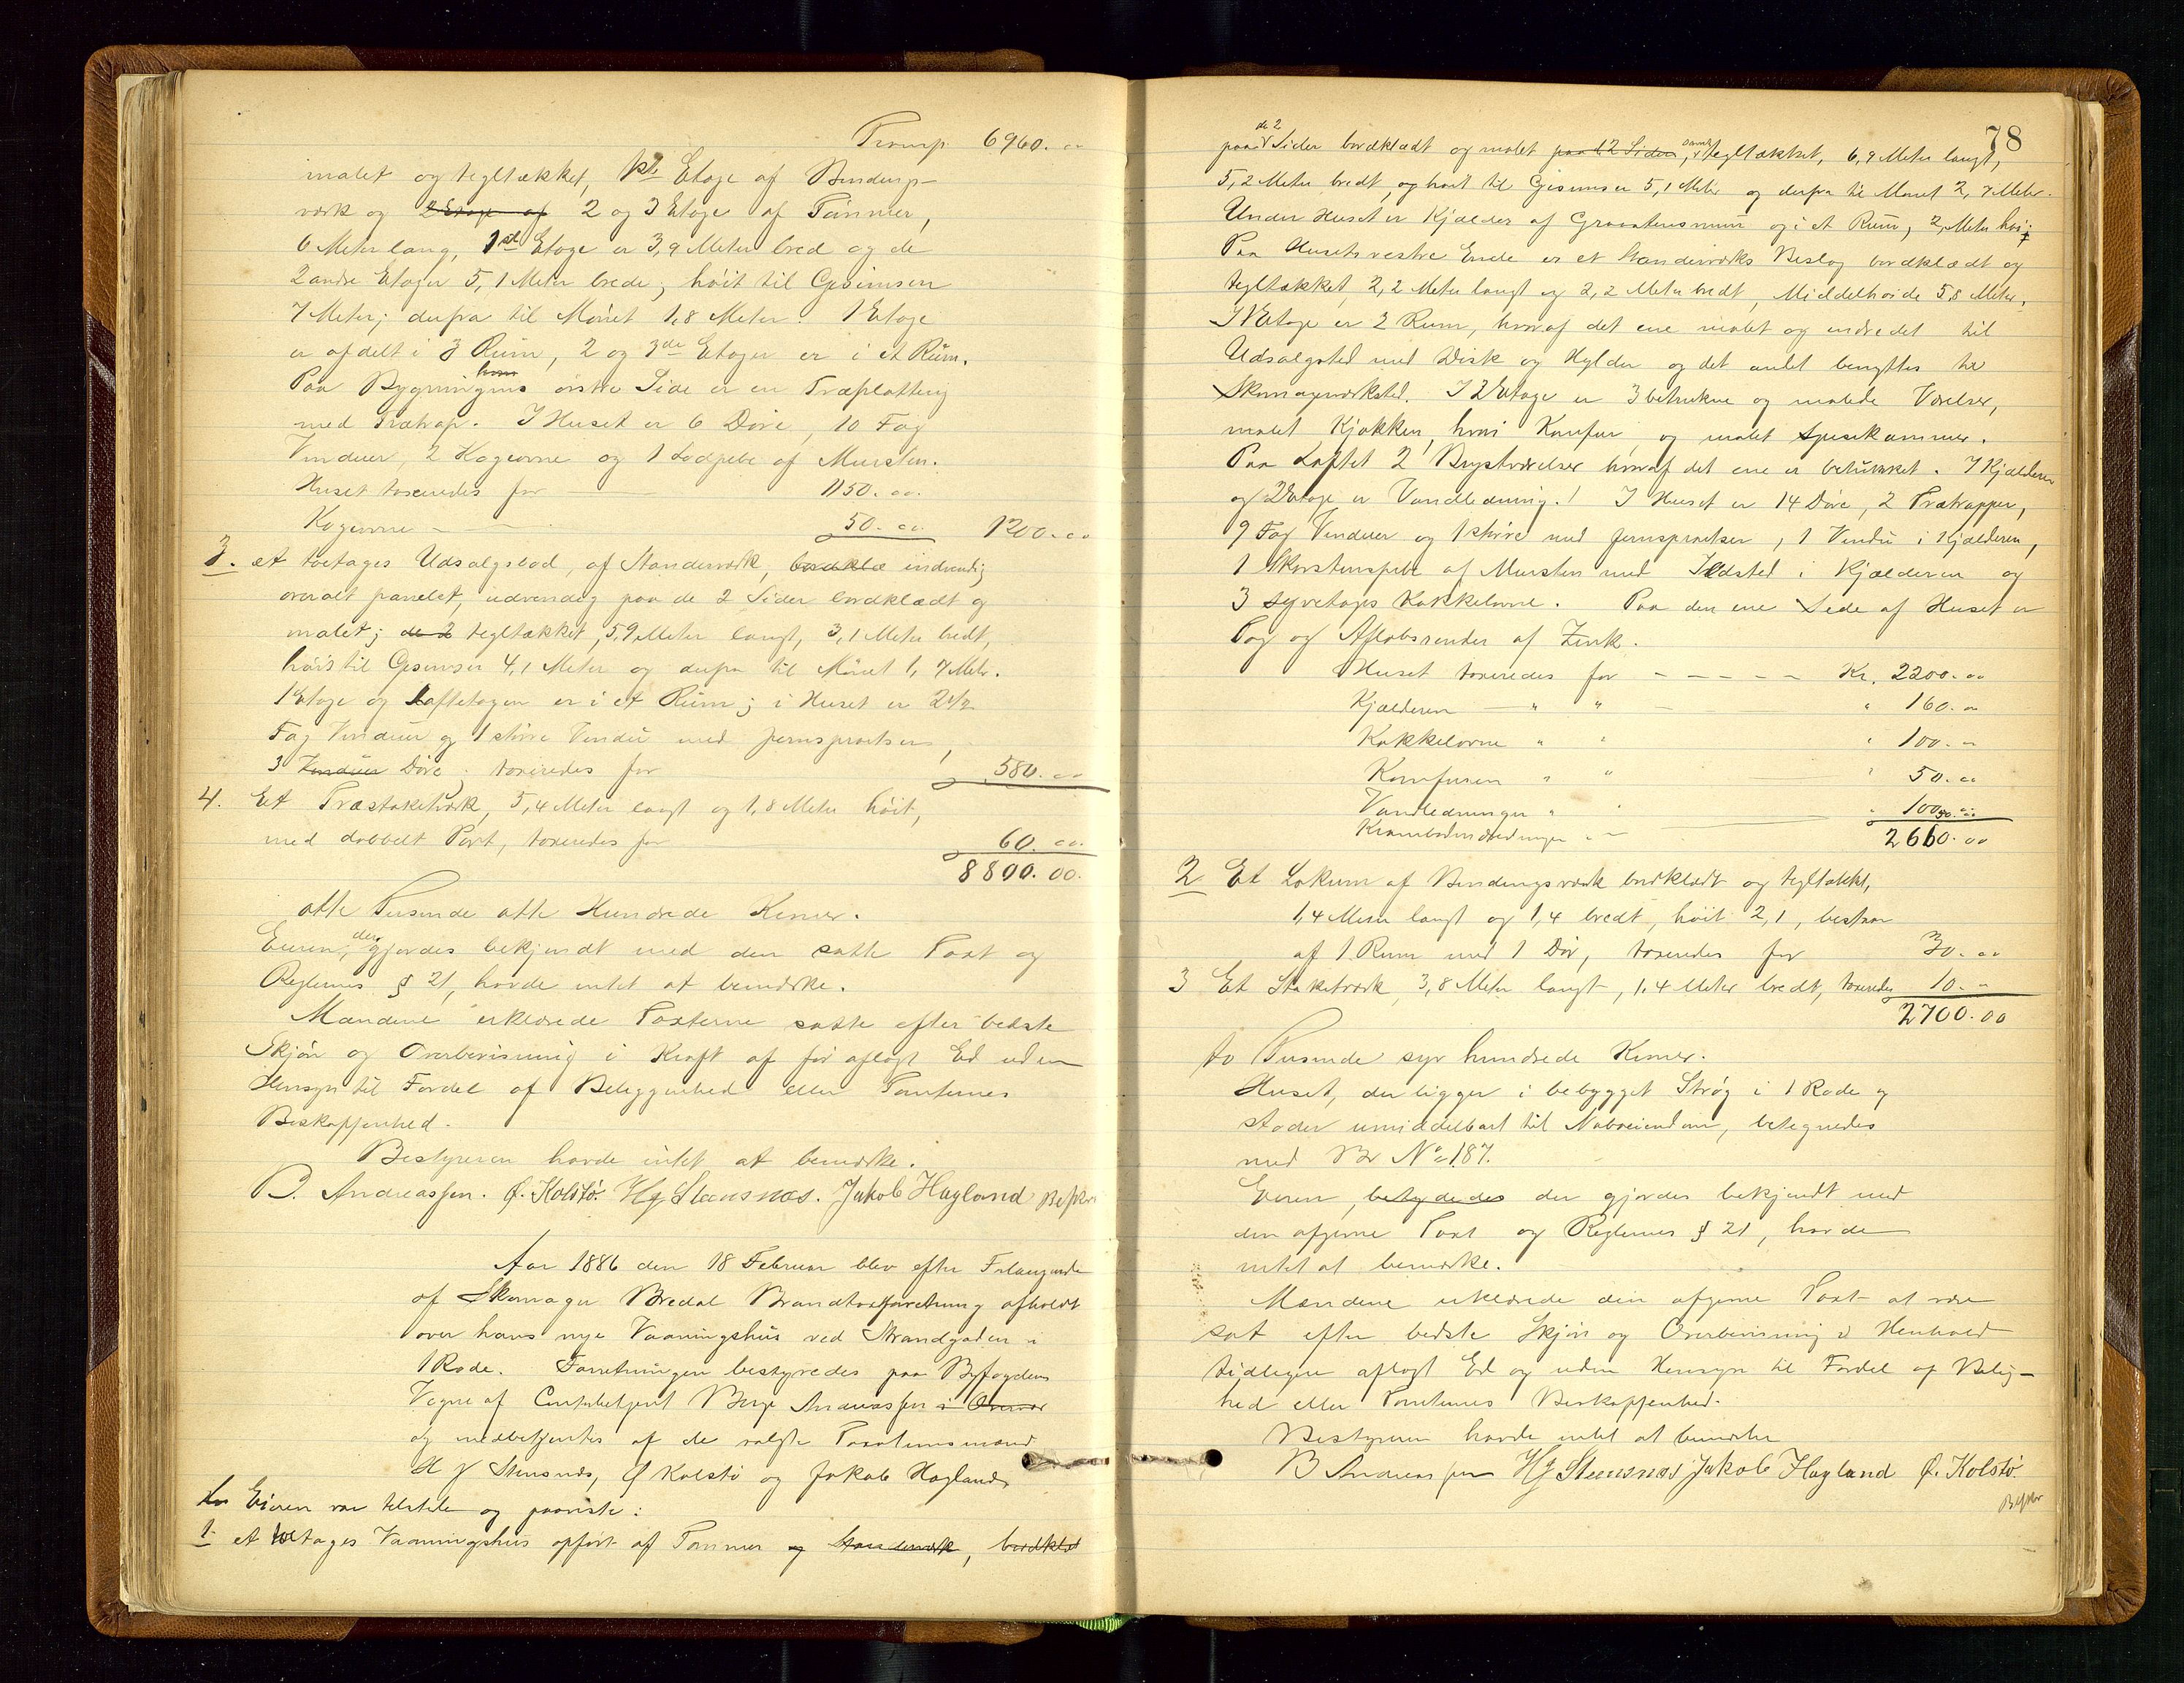 Transp. 6960.00
malet og tegltækket, 1ste Etage af Bindings-
værk og 2 Etage af 2 og 3 Etage af Tømmer,
6 Meter lang, 1ste Etage er 3,9 Meter bred og de
2 andre Etager 5,1 Meter brede; høit til Gesimsen
7 Meter; derfra til Mønet 1,8 Meter. 1 Etage
er afdelt i 3 Rum, 2 og 3de Etager er i et Rum.
Paa Bygningens østre Side er en Træplatting
med Trætrap. I Huset er 6 Døre, 10 Fag
Vinduer, 2 Kogeovne og 1 Lodpibe af Mursten.
Huset taxeredes for — 1150.00.
Kogeovne — — 50.00 1200.00
3. et toetages Udsalgsbod, af Standerværk, bordklæ indvendig
overalt panelet, udvendig paa de 2 Sider bordklædt og
malet; de 2 tegltækket, 5,9 Meter langt, 3,1 Meter bredt,
høit til Gesimsen 4,1 Meter og derfra til Mønet 1,7 Meter.
1 Etage og Loftetagen er i et Rum; i Huset er 2 1/2
Fag Vinduer og 1 større Vindu med Jernsprosser,
3 Vinduer Døre; taxeredes for 580.00
4. Et Træstaketværk, 5,4 Meter langt og 1,8 Meter høit,
med dobbelt Port, taxeredes for 60.00.
8800.00.
otte Tusinde otte Hundrede Kroner.
Eieren, der gjordes bekjendt med den satte Taxt og
Reglernes § 21, havde intet at bemærke.
Mændene erklærede Taxterne satte efter bedste
Skjøn og Overbevisning i Kraft af før aflagt Ed uden
Hensyn til Fordel af Beliggenhed eller Tomternes
Beskaffenhed.
Bestyreren havde intet at bemærke.
B. Andreassen. Ø. Kolstø. HJ Steensnæs. Jakob Hagland Beskr
Aar 1886 den 18 Februar blev efter Forlangende
af Skomager Bredal Brandtaxtforretning afholdt
over hans nye Vaaningshus ved Strandgaden i
1 Rode. Forretningen bestyredes paa Byfogdens
Vegne af Contorbetjent Berge Andreassen
og medbetjentes af de valgte Taxationsmænd
H J Stensnæs, Ø Kolstø og Jakob Hagland,
Eieren var tilstede og paaviste:
1. et toetages Vaaningshus opført af Tømmer og Standerværk, bordklæd
78
paa de 2 Sider bordklædt og malet paa 2 Sider, tegltækket, 6,9 Meter langt,
5,2 Meter bredt, og høit til Gesimsen 5,1 Meter og derfra til Mønet 2,7 Meter.
Under Huset er Kjælder af Graastensmur og i et Rum, 2, Meter høi;
Paa Husets vestre Ende er et Standerværks Beslag bordklædt og
tegltækket, 2,2 Meter langt og 2,2 Meter bredt, Middelhøide 5,8 Meter.
I 1 Etage er 2 Rum, hvoraf det ene malet og indredet til
Udsalgsted med Disk og Hylder og det andet benyttes til
Skomagerværksted. I 2 Etage er 3 betrukne og malede Værelser,
malet Kjøkken, hvori Komfur og malet Spisekammer.
Paa Loftet 2 Brystværelser hvoraf det ene er betrukket. I Kjælderen
og 2 Etage er Vandledning. I Huset er 14 Døre, 2 Trætrapper,
9 Fag Vinduer og 1 større med Jernsprosser, 1 Vindu i Kjælderen,
1 Skorstenspibe af Mursten med Ildsted i Kjælderen og
3 syvetages Kakkelovne. Paa den ene Side af Huset er
Tag og Afløbsrender af Zink.
Huset taxeredes for — — — — — Kr. 2200.00
Kjælderen — " " — " 160.00
Kakkelovne " " " 100.—
Komfuren " " " 50.00
Vandledninger " " " 100.00
Krambodindredninger " — 50.00
2660.00
2 Et Lokum af Bindingsværk bordklædt og tegltækket,
1,4 Meter langt og 1,4 bredt, høit 2,1, bestaar
af 1 Rum med 1 Dør, taxeredes for 30.00
3 Et Staketværk 3,8 Meter langt, 1.4 Meter bredt, taxeredes 10.—
2700.00
to Tusinde syv hundrede Kroner.
Huset, der ligger i bebygget Strøg i 1 Rode og
støder umiddelbart til Naboeiendom, betegnedes
med Br No 187.
Eieren, betydedes der gjordes bekjendt med
den afgivne Taxt og Reglernes § 21, havde
intet at bemærke.
Mændene erklærede den afgivne Taxt at være
sat efter bedste Skjøn og Overbevisning i Henhold
tidligere aflagt Ed og uden Hensyn til Fordel af Belig-
hed eller Tomternes Beskaffenhed.
Bestyreren havde intet at bemærke
B Andreassen HJ Steensnæs Jakob Hagland Ø. Kolstø.
Beskr